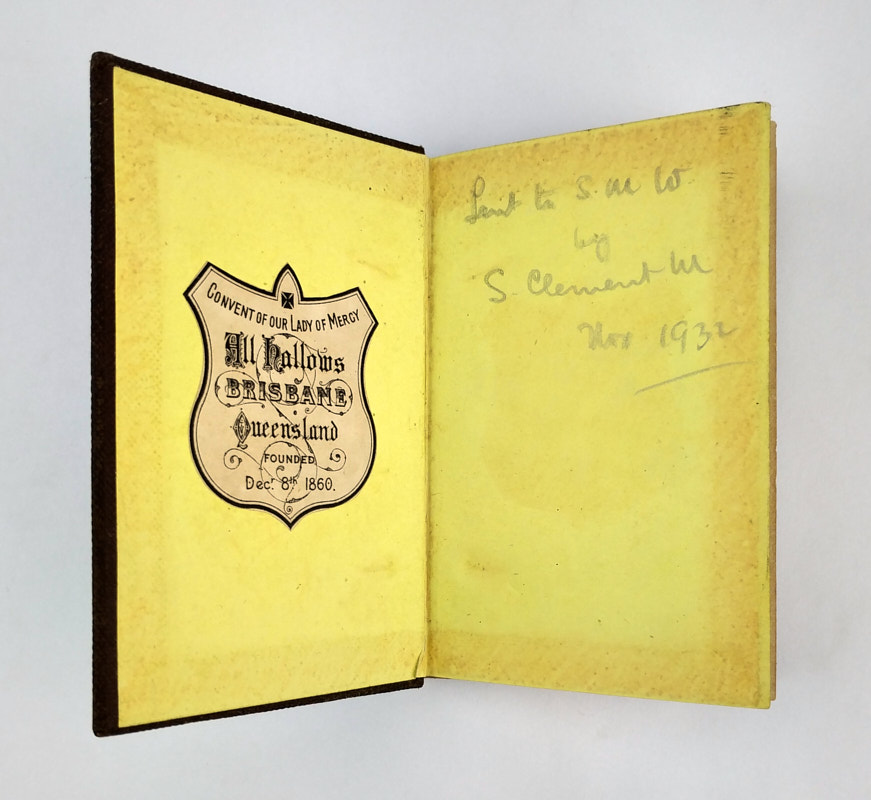 CONVENT OF OUR LADY OF MERCY
All Hallows
BRISBANE
Queensland
FOUNDED
Dec.r 8th 1860.
Lent to S. M W
by
S. Clement M
Nov 1932